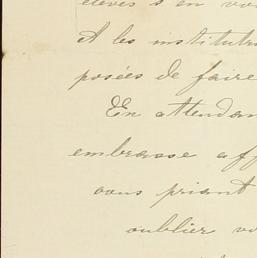 élèves s'en vo
A les institutri
posées de faire
En attendan
embrasse aff
vous priant
oublier vo